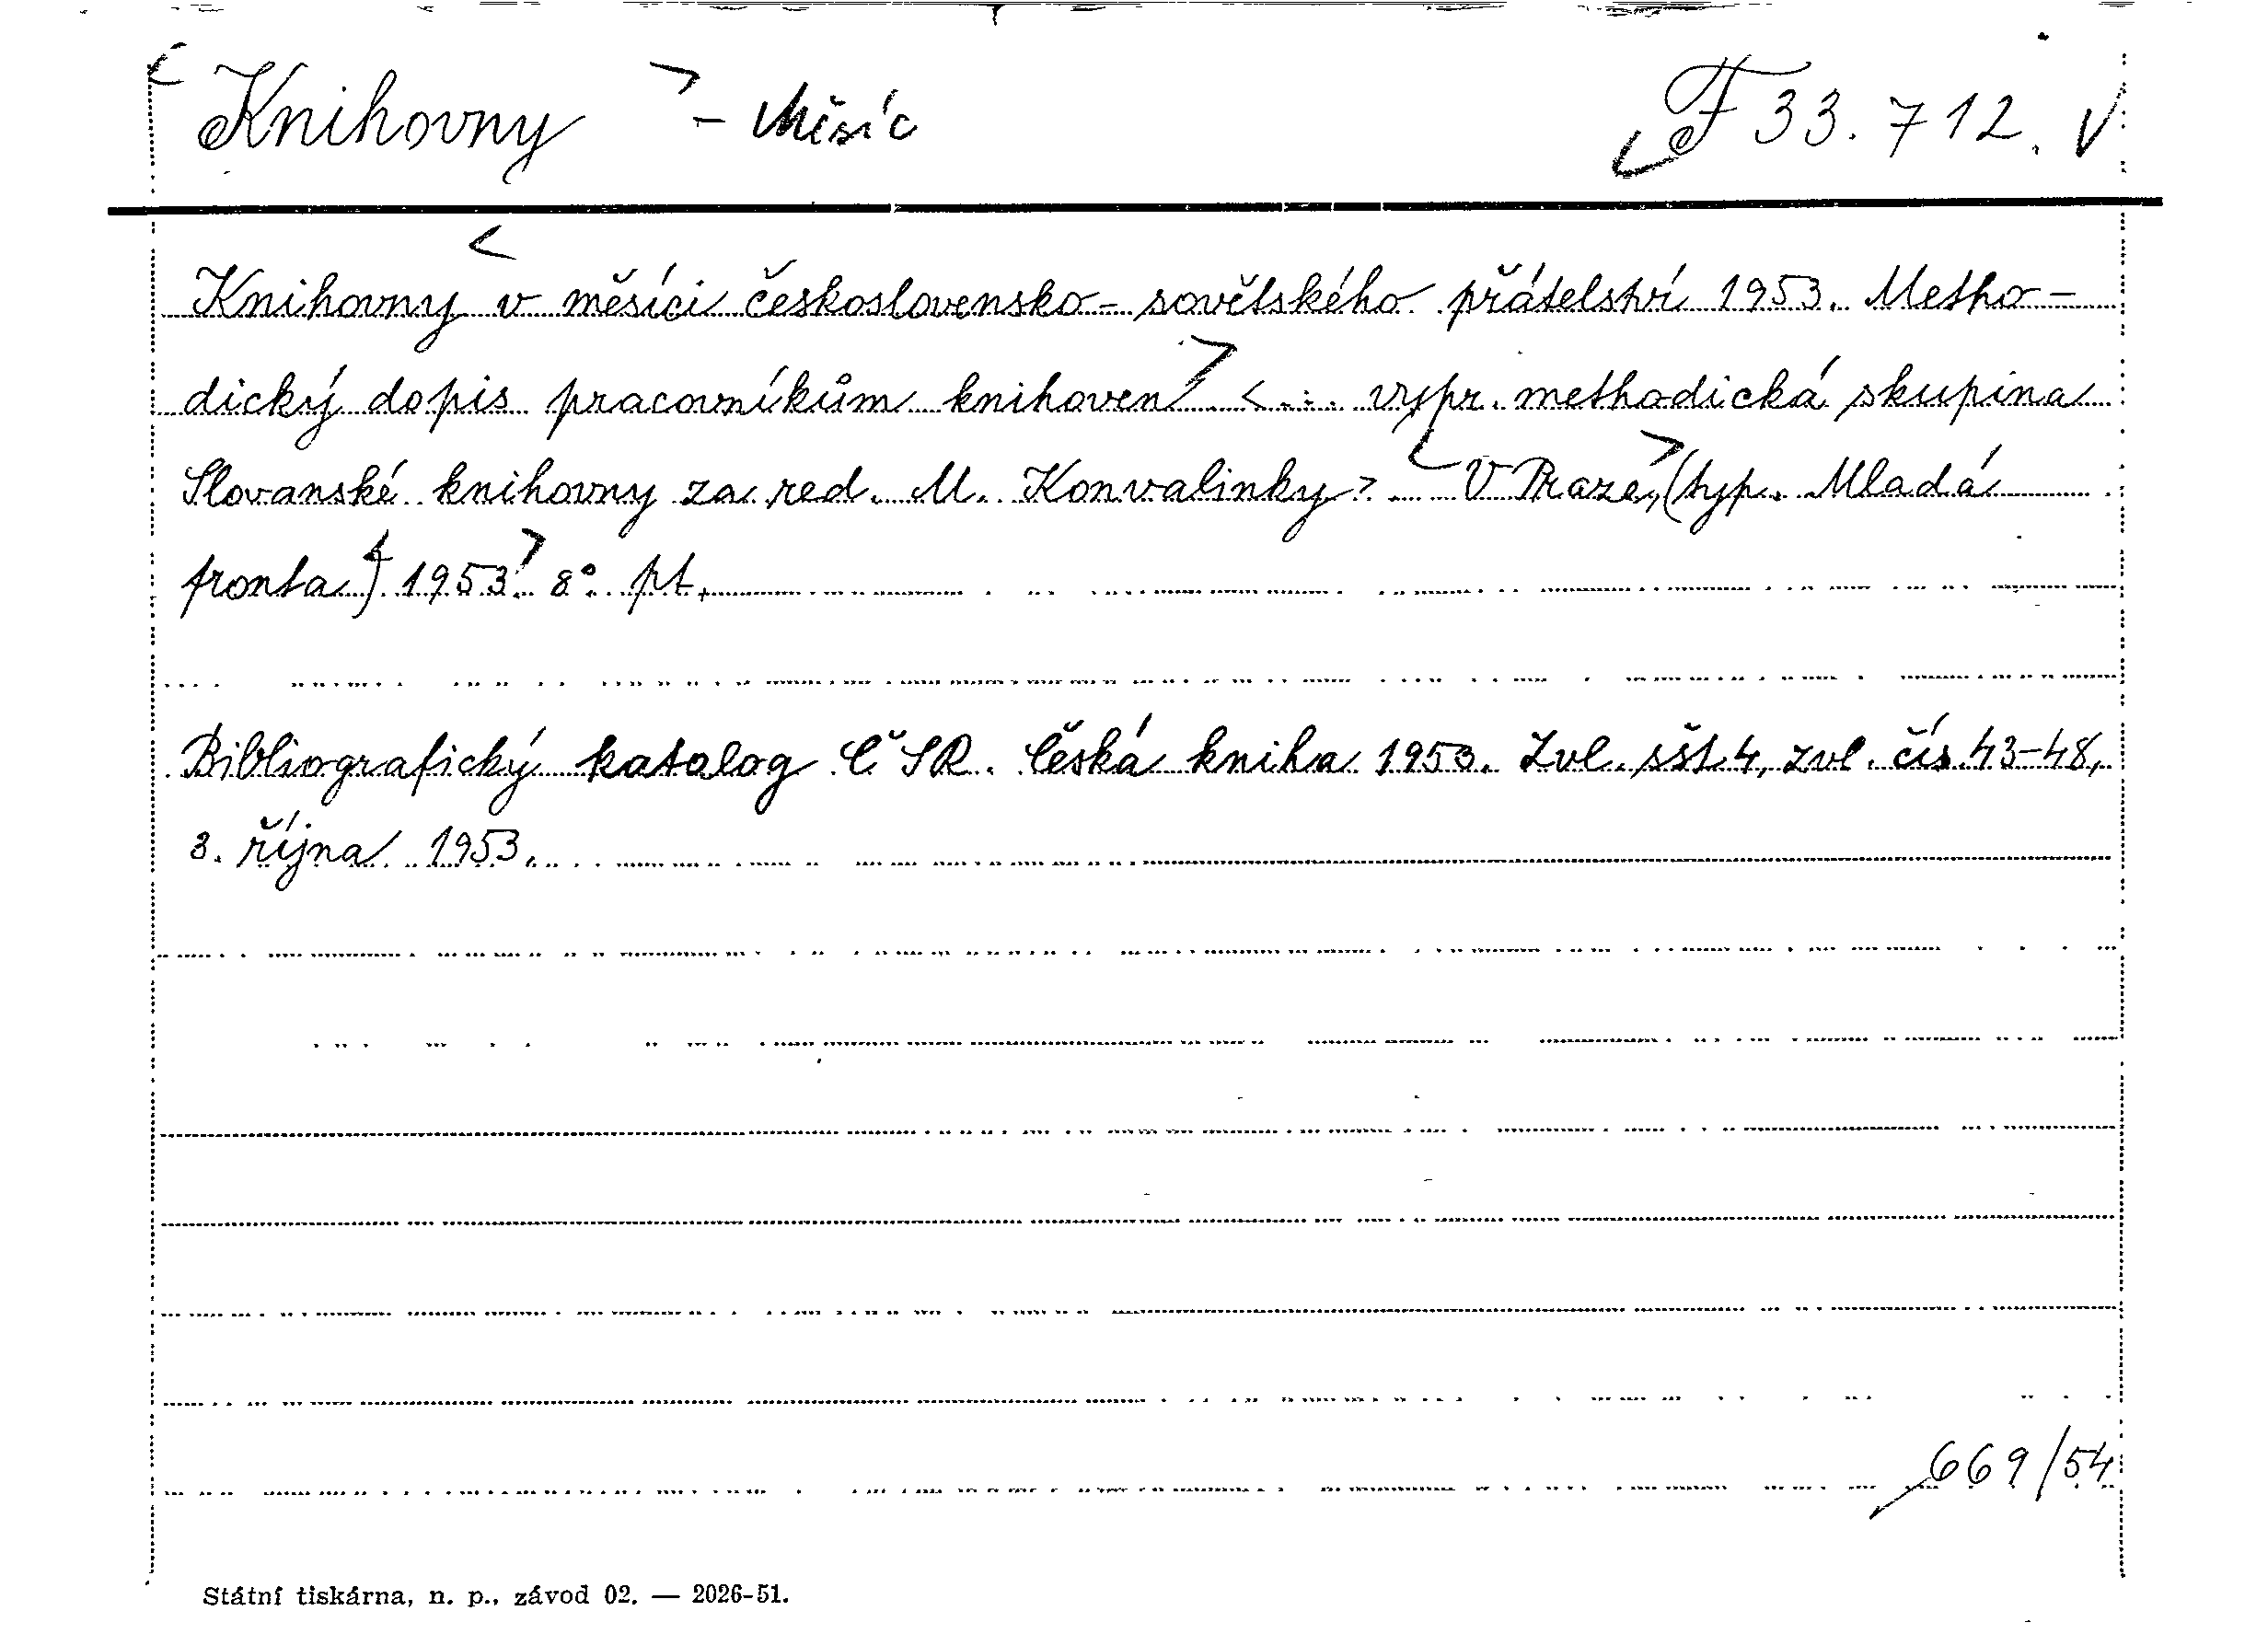 Knihovny - Měsíc F 33.712.
Knihovny v měsíci československo-sovětského přátelství 1953. Metho-
dický dopis pracovníkům knihoven <... vypr. methodická skupina
Slovanské knihovny za red. M. Konvalinky> V Praze, (typ. Mladá
fronta) 1953. 8°. pt.
Bibliografický katalog ČSR. Česká kniha 1953. Zvl. sšt. 4, zvl. čís. 43-48,
3. října 1953.
669/54
Státní tiskárna, n. p., závod 02. — 2026-51.